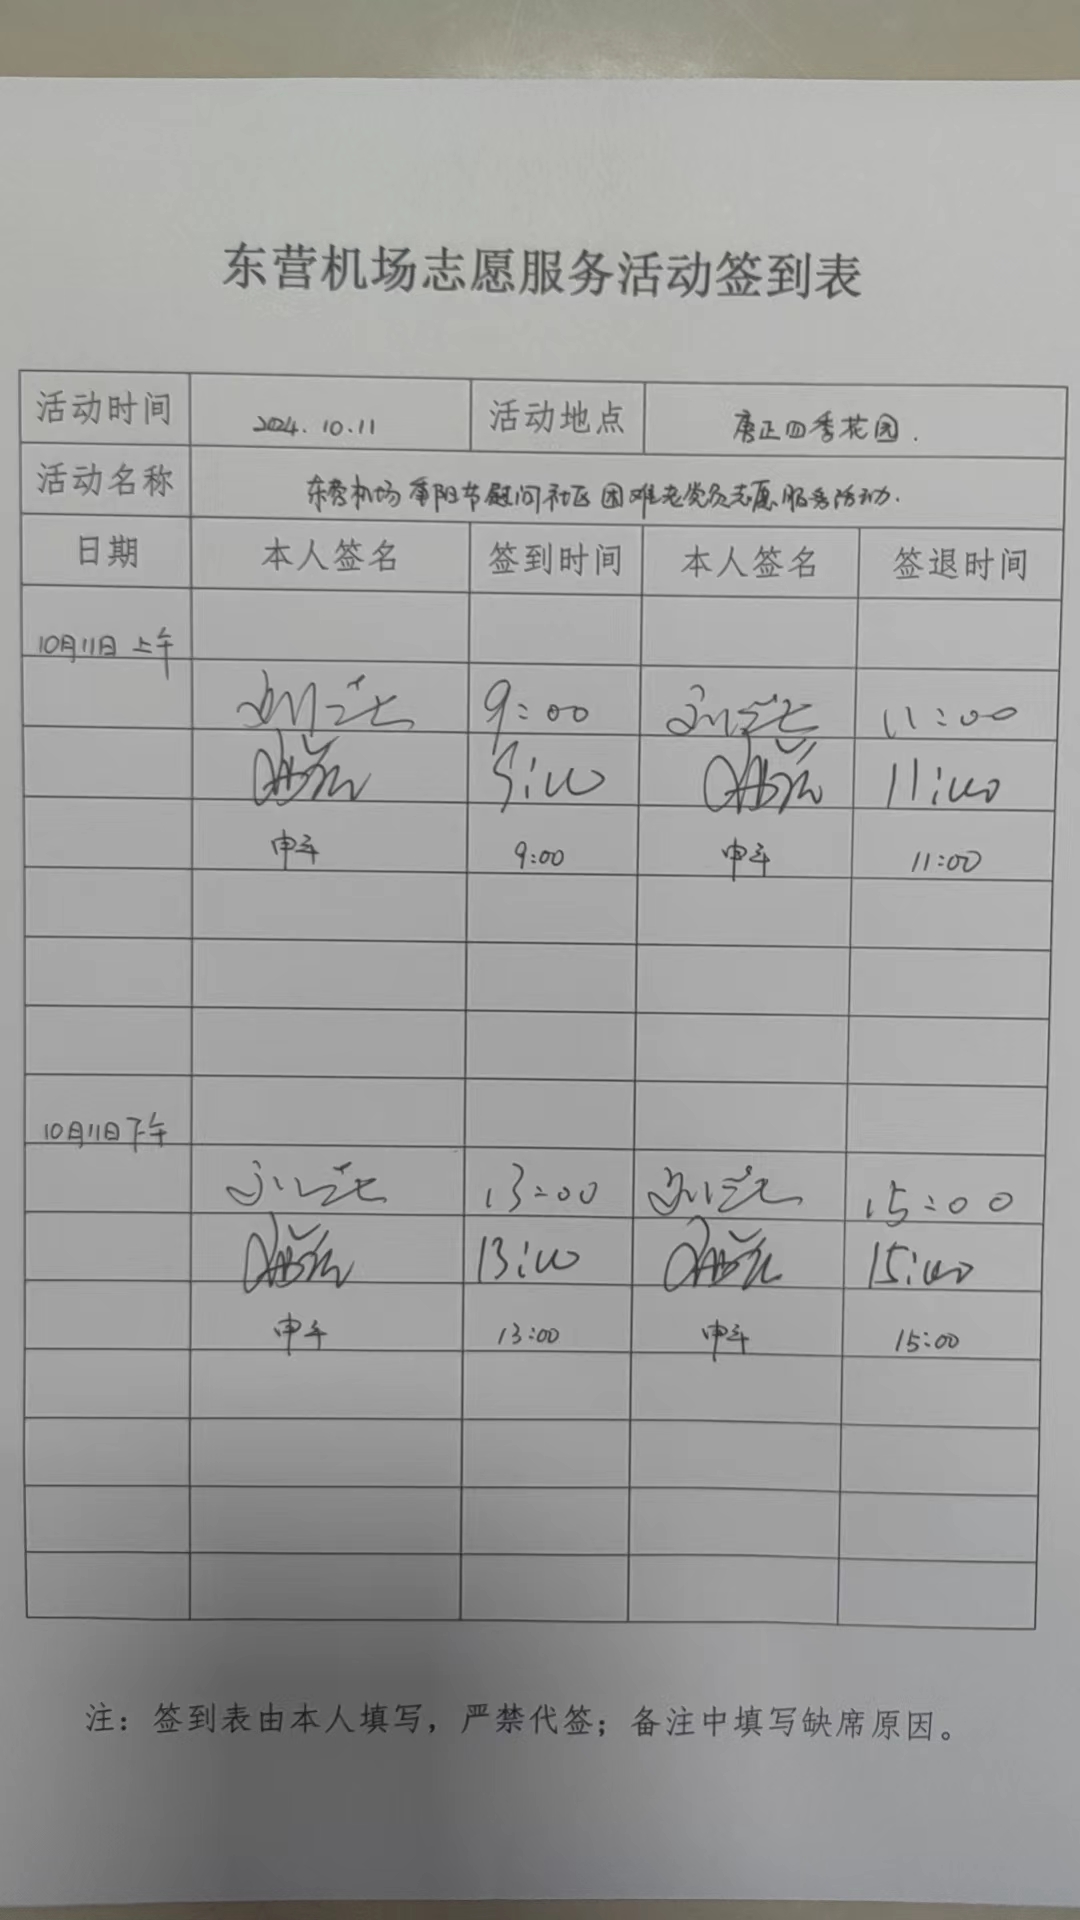 东营机场志愿服务活动签到表
活动时间 2024.10.11 活动地点 唐正四季花园.
活动名称 东营机场重阳节慰问社区困难老党员志愿服务活动.
日期 本人签名 签到时间 本人签名 签退时间
10月11日上午
9:00 11:00
9:00 11:00
申 9:00 申 11:00
10月11日下午
13:00 15:00
13:00 15:00
申 13:00 申 15:00
注：签到表由本人填写，严禁代签；备注中填写缺席原因。